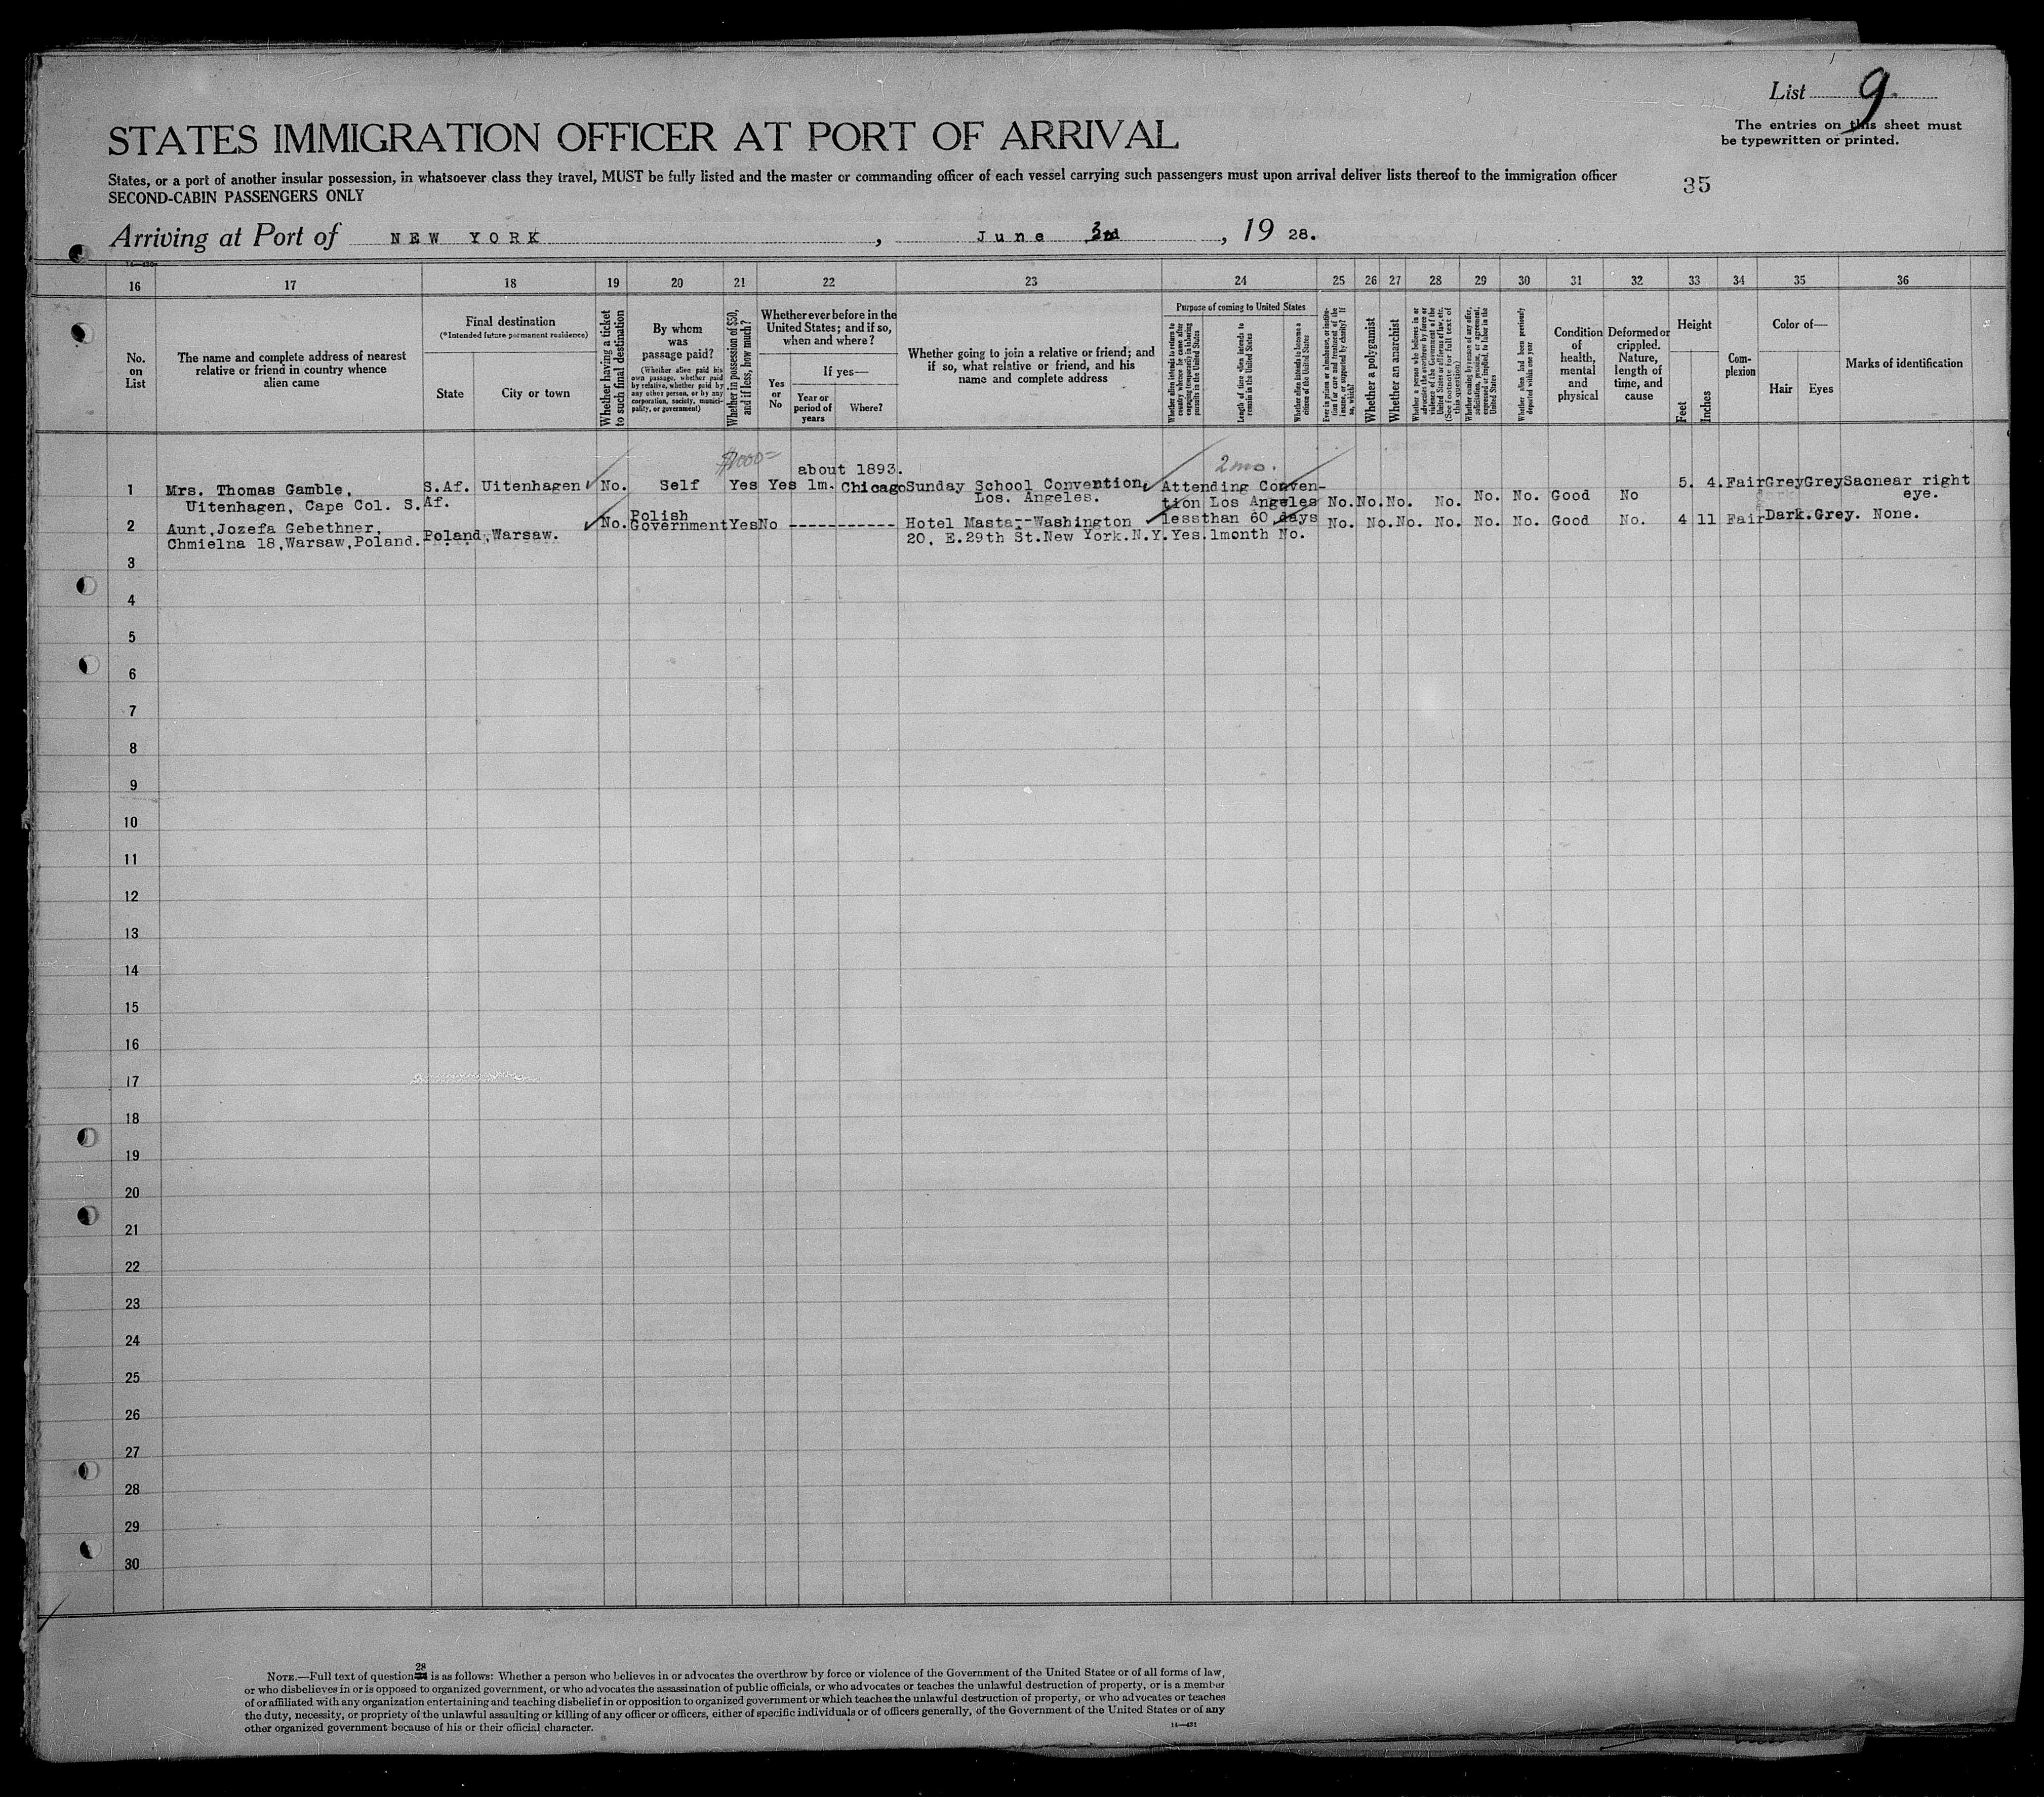 List 9.
The entries on this sheet must
be typewritten or printed.
STATES IMMIGRATION OFFICER AT PORT OF ARRIVAL
States, or a port of another insular possession, in whatsoever class they travel, MUST be fully listed and the master or commanding officer of each vessel carrying such passengers must upon arrival deliver lists thereof to the immigration officer
SECOND-CABIN PASSENGERS ONLY
35
Arriving at Port of NEW YORK, June 3rd, 1928.
16 17 18 19 20 21 22 23 24 25 26 27 28 29 30 31 32 33 34 35 36
No. on List
The name and complete address of nearest relative or friend in country whence alien came
Final destination
(*Intended future permanent residence)
State
City or town
Whether having a ticket to such final destination
By whom was passage paid?
(Whether alien paid his own passage, whether paid by relative, whether paid by any other person, or by any corporation, society, municipality, or government)
Whether in possession of $50, and if less, how much?
Whether ever before in the United States; and if so, when and where?
Yes or No
If yes—
Year or period of years
Where?
Whether going to join a relative or friend; and if so, what relative or friend, and his name and complete address
Purpose of coming to United States
Whether alien intends to return to country whence he came after engaging temporarily in laboring pursuits in the United States
Length of time alien intends to remain in the United States
Whether alien intends to become a citizen of the United States
Ever in prison or almshouse, or institution for care and treatment of the insane, or supported by charity? If so, which?
Whether a polygamist
Whether an anarchist
Whether a person who believes in or advocates the overthrow by force or violence of the Government of the United States or all forms of law, etc. (See footnote for full text of this question)
Whether coming by reason of any offer, solicitation, promise, or agreement, expressed or implied, to labor in the United States
Whether alien had been previously deported within one year
Condition of health, mental and physical
Deformed or crippled. Nature, length of time, and cause
Height
Feet
Inches
Complexion
Color of—
Hair
Eyes
Marks of identification
$1000= about 1893. 2 mo.
1 Mrs. Thomas Gamble, S.Af. Uitenhagen No. Self Yes Yes 1m. Chicago Sunday School Convention, Attending Conven- 5. 4. Fair Grey Grey Sacnear right
Uitenhagen, Cape Col. S.Af. Los. Angeles. tion Los Angeles No. No. No. No. No. No. Good No eye.
2 Aunt, Jozefa Gebethner, No. Polish Government Yes No ----------- Hotel Masta--Washington lessthan 60 days No. No. No. No. No. No. Good No. 4 11 Fair Dark. Grey. None.
Chmielna 18, Warsaw, Poland. Poland, Warsaw. 20, E.29th St. New York. N.Y. Yes. 1month No.
3
4
5
6
7
8
9
10
11
12
13
14
15
16
17
18
19
20
21
22
23
24
25
26
27
28
29
30
NOTE.—Full text of question 28 is as follows: Whether a person who believes in or advocates the overthrow by force or violence of the Government of the United States or of all forms of law,
or who disbelieves in or is opposed to organized government, or who advocates the assassination of public officials, or who advocates or teaches the unlawful destruction of property, or is a member
of or affiliated with any organization entertaining and teaching disbelief in or opposition to organized government or which teaches the unlawful destruction of property, or who advocates or teaches
the duty, necessity, or propriety of the unlawful assaulting or killing of any officer or officers, either of specific individuals or of officers generally, of the Government of the United States or of any
other organized government because of his or their official character.
14—431